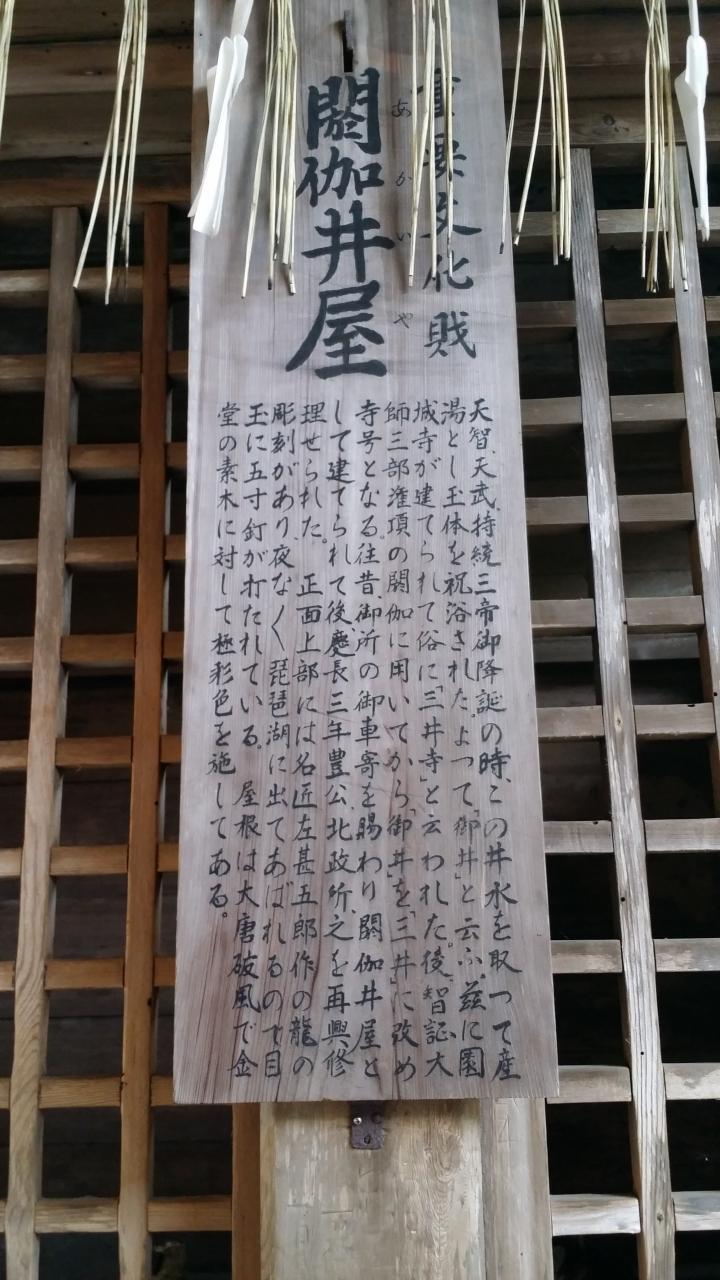 重要文化財
閼伽井屋
あかいや
天智、天武、持統三帝御降誕の時、この井水を取って産
湯とし玉体を祝浴された。よって「御井」と云ふ、茲に園
城寺が建てられて俗に「三井寺」と云われた。後、智証大
師三部潅頂の閼伽に用いてから「御井」を「三井」に改め
寺号となる。往昔、御所の御車寄を賜わり閼伽井屋と
して建てられて後、慶長三年豊公北政所、之を再興修
理せられた。 正面上部には名匠左甚五郎作の龍の
彫刻があり夜な〱琵琶湖に出てあばれるので目
玉に五寸釘が打たれている。 屋根は大唐破風で金
堂の素木に対して極彩色を施してある。